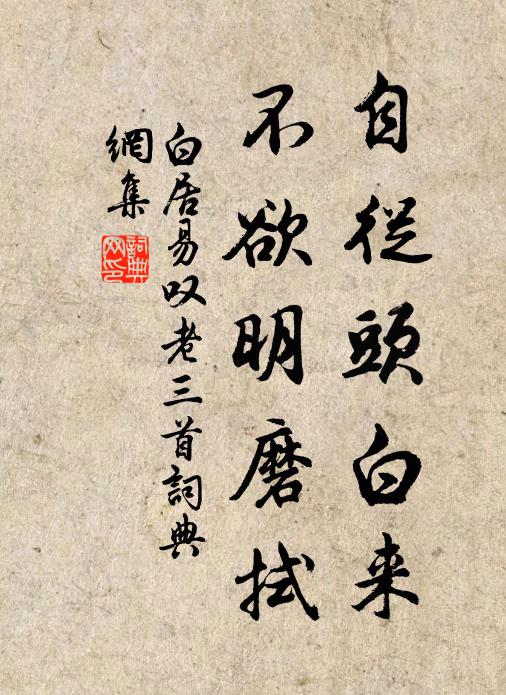 自從頭白来
不欲明磨拭
白居易叹老三首詞典
網集
詞典
网印